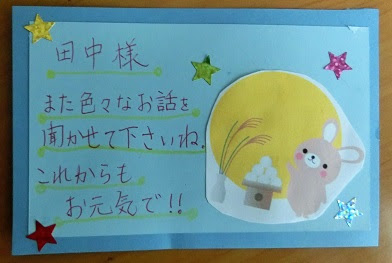 田中様
また色々なお話を
聞かせて下さいね.
これからも
お元気で!!